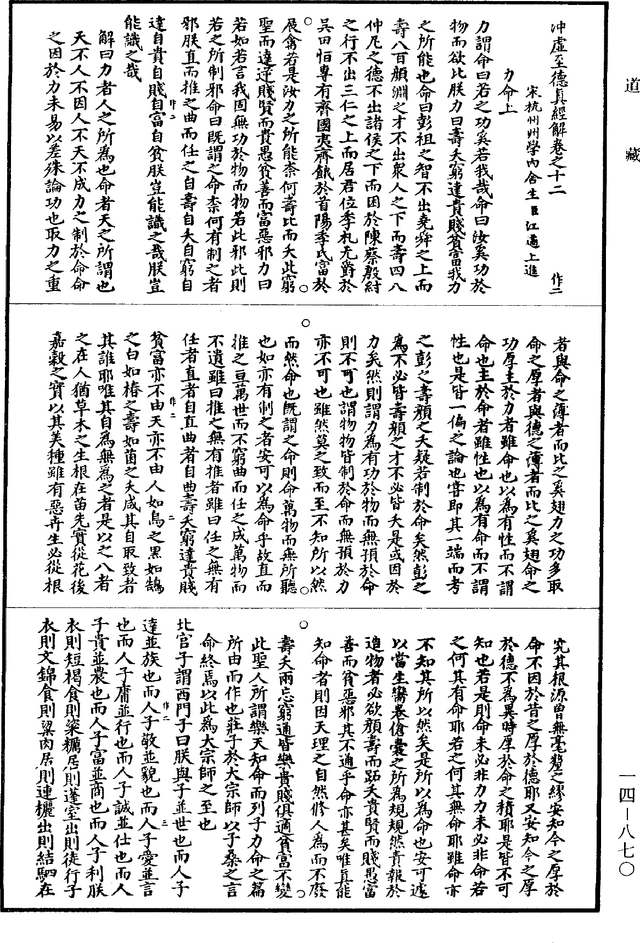 道藏
沖虛至德真經解卷之十二
宋杭州州學內舍生臣江遹上進
作二
力命上
力謂命曰若之功奚若我哉命曰汝奚功於
物而欲比朕力曰壽夭窮達貴賤貧富我力
之所能也命曰彭祖之智不出堯舜之上而
壽八百顏淵之才不出眾人之下而壽四八
仲尼之德不出諸侯之下而困於陳蔡殷紂
之行不出三仁之上而居君位季札无爵於
吳田恒專有齊國夷齊餓於首陽季氏富於
展禽若是汝力之所能柰何壽比而夭此窮
聖而達逆賤賢而貴愚貧善而富惡邪力曰
若如若言我固無功於物而物若此邪此則
若之所制邪命曰既謂之命柰何有制之者
邪朕直而推之曲而任之自壽自夭自窮自
達自貴自賤自富自貧朕豈能識之哉朕豈
能識之哉
解曰力者人之所為也命者天之所謂也
天不人不因人不天不成力之制於命命
之因於力未易以差殊論功也取力之重
者與命之薄者而比之奚翅力之功多取
命之厚者與德之薄者而比之奚翅命之
功厚主於力者雖命也以為有性而不謂
命也主於命者雖性也以為有命而不謂
性也是皆一偏之論也嘗即其一端而考
之彭之壽顏之夭疑若制於命矣然彭之
為不必皆壽顏之才不必皆夭是或因於
力矣然則謂力為有功於物而無預於命
則不可也謂物物皆制於命而無預於力
亦不可也雖然莫之致而至不知所以然
而然命也既謂之命則命萬物而無所聽
也如亦有制之者安可以為命乎故直而
推之亘萬世而不窮曲而任之成萬物而
不遺雖曰推之無有推者雖曰任之無有
任者直者自直曲者自曲壽夭窮達貴賤
貧富亦不由天亦不由人如烏之黑如鵠
之白如椿之壽如菌之夭咸其自取致者
其誰耶唯其自為無為之者是以之八者
之在人猶草木之生根在苗先實從花後
嘉穀之實以其美種雖有惡卉生必從根
究其根源曾無毫髮之繆安知今之厚於
命不因於昔之厚於德耶又安知今之厚
於德不為異時厚於命之積耶是皆不可
知也若是則命未必非力力未必非命若
之何其有命耶若之何其無命耶雖命亦
不知其所以然矣是所以為命也安可遽
以當生臠卷傖囊之所為規規然責報於
造物者必欲顏壽而跖夭貴賢而賤愚富
善而貧惡邪其不通乎命亦甚矣唯真能
知命者則因天理之自然修人為而不廢
壽夭兩忘窮通皆樂貴賤俱適貧富不變
此聖人所謂樂天知命而列子力命之篇
所由而作也莊子於大宗師以子桑之言
命終焉以此為大宗師之至也
北宮子謂西門子曰朕與子並世也而人子
達並族也而人子敬並貌也而人子愛並言
也而人子庸並行也而人子誠並仕也而人
子貴並農也而人子富並商也而人子利朕
衣則短褐食則粢糲居則蓬室出則徒行子
衣則文錦食則粱肉居則連欐出則結駟在
一四—八七〇